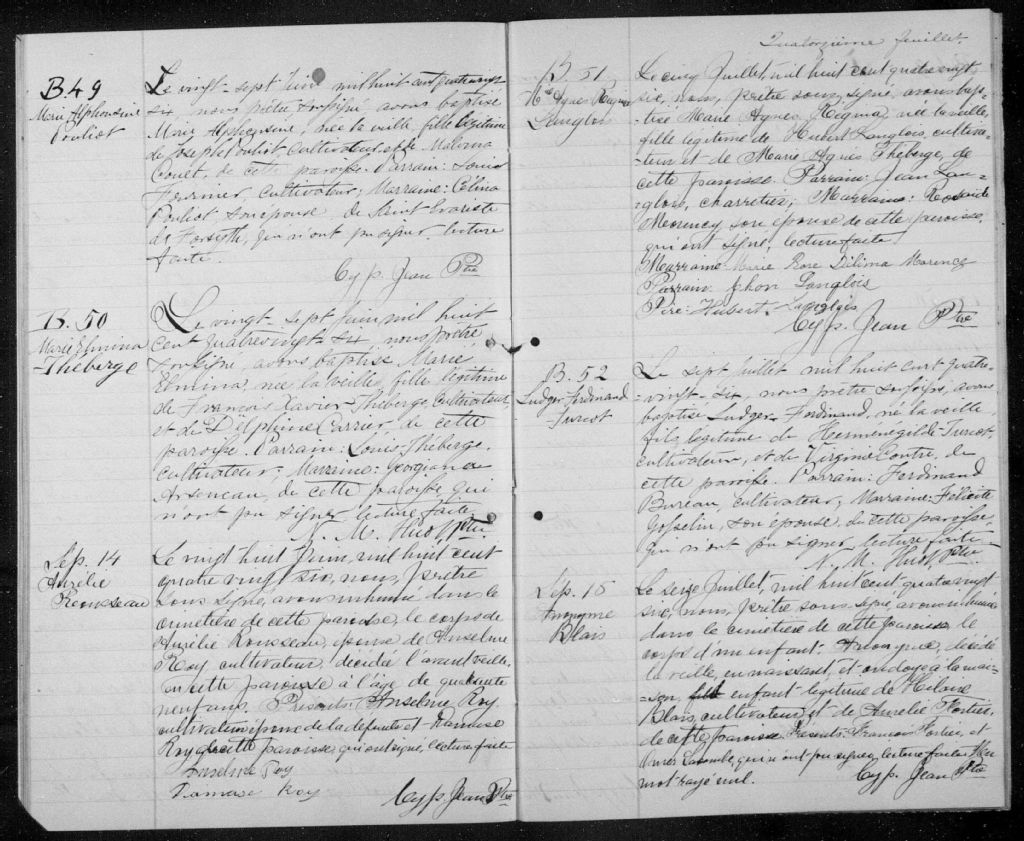 B. 49
Marie Alphonsine
Pouliot
Le vingt-sept Juin mil huit cent quatre vingt
six nous prêtre soussigné avons baptisé
Marie Alphonsine, née la veille, fille légitime
de Joseph Pouliot cultivateur et de Malvina
de cette paroisse. Parrain: Louis
Fournier cultivateur; Marraine: Célina
Pouliot son épouse, de Saint Evariste
de Forsyth, qui n'ont pu signer. lecture
faite.
Cyp. Jean Ptre
B. 50
Marie Elmina
Théberge
Le vingt-sept Juin mil huit
cent quatrevingt-six, nous prêtre,
soussigné, avons baptisé Marie
Elmina, née la veille, fille légitime
de François Xavier Théberge, cultivateur,
et de Delphine Carrier, de cette
paroisse. Parrain: Louis Théberge,
cultivateur; Marraine: Georgianna
Arseneau, de cette paroisse qui
n'ont pu signer, lecture faite.
N. M. Huot, Ptre
Sep. 14
Aurélie
Rousseau
Le vingt huit Juin, mil huit cent
quatre vingt six, nous, prêtre
sous signé, avons inhumé dans le
cimetière de cette paroisse, le corps de
Aurélie Rousseau, épouse de Anselme
Roy cultivateur, décédée l'avant veille,
en cette paroisse à l'âge de quarante
neuf ans. Présents: Anselme Roy
cultivateur époux de la défunte et Damase
Roy de cette paroisse, qui ont signé, lecture faite
Anselme Roy
Damase Roy
Cyp. Jean Ptre
Quatorzième feuillet.
B. 51
Mie Agnès Régina
Langlois
Le cinq Juillet, mil huit cent quatre vingt
six, nous, prêtre sous signé, avons bap-
tisé Marie Agnès Régina, née la veille,
fille légitime de Hubert Langlois, cultiva-
teur et de Marie Agnès Théberge, de
cette paroisse. Parrain: Jean Lan-
glois, charretier; Marraine: Rose de
Morency, son épouse de cette paroisse,
qui ont signé, lecture faite.
Marraine Marie Rose Délima Morency
Parrain Jhon Langlois
Père: Hubert Langlois
Cyp. Jean Ptre
B. 52
Ludger Ferdinand
Turcot
Le sept Juillet mil huit cent quatre-
vingt-six, nous prêtre soussigné, avons
baptisé Ludger Ferdinand, né la veille,
fils légitime de Herménégilde Turcot,
cultivateur, et de Virginie Contre, de
cette paroisse. Parrain: Ferdinand
Bureau, cultivateur, Marraine: Félicité
Gosselin, son épouse, de cette paroisse,
qui n'ont pu signer, lecture faite.
N. M. Huot, Ptre
Sep. 15
Anonyme
Blais
Le seize Juillet, mil huit cent quatre vingt
six, nous, prêtre sous-signé, avons inhumé
dans le cimetière de cette paroisse, le
corps d'un enfant Anonyme, décédé
la veille, en naissant, et ondoyé à la mai-
son, enfant légitime de Hilaire
Blais, cultivateur, et de Aurélie Fortier,
de cette paroisse. Présents: François Fortier, et
Lacombe, qui n'ont pu signer, lecture faite. Un
mot rayé nul.
Cyp. Jean Ptre